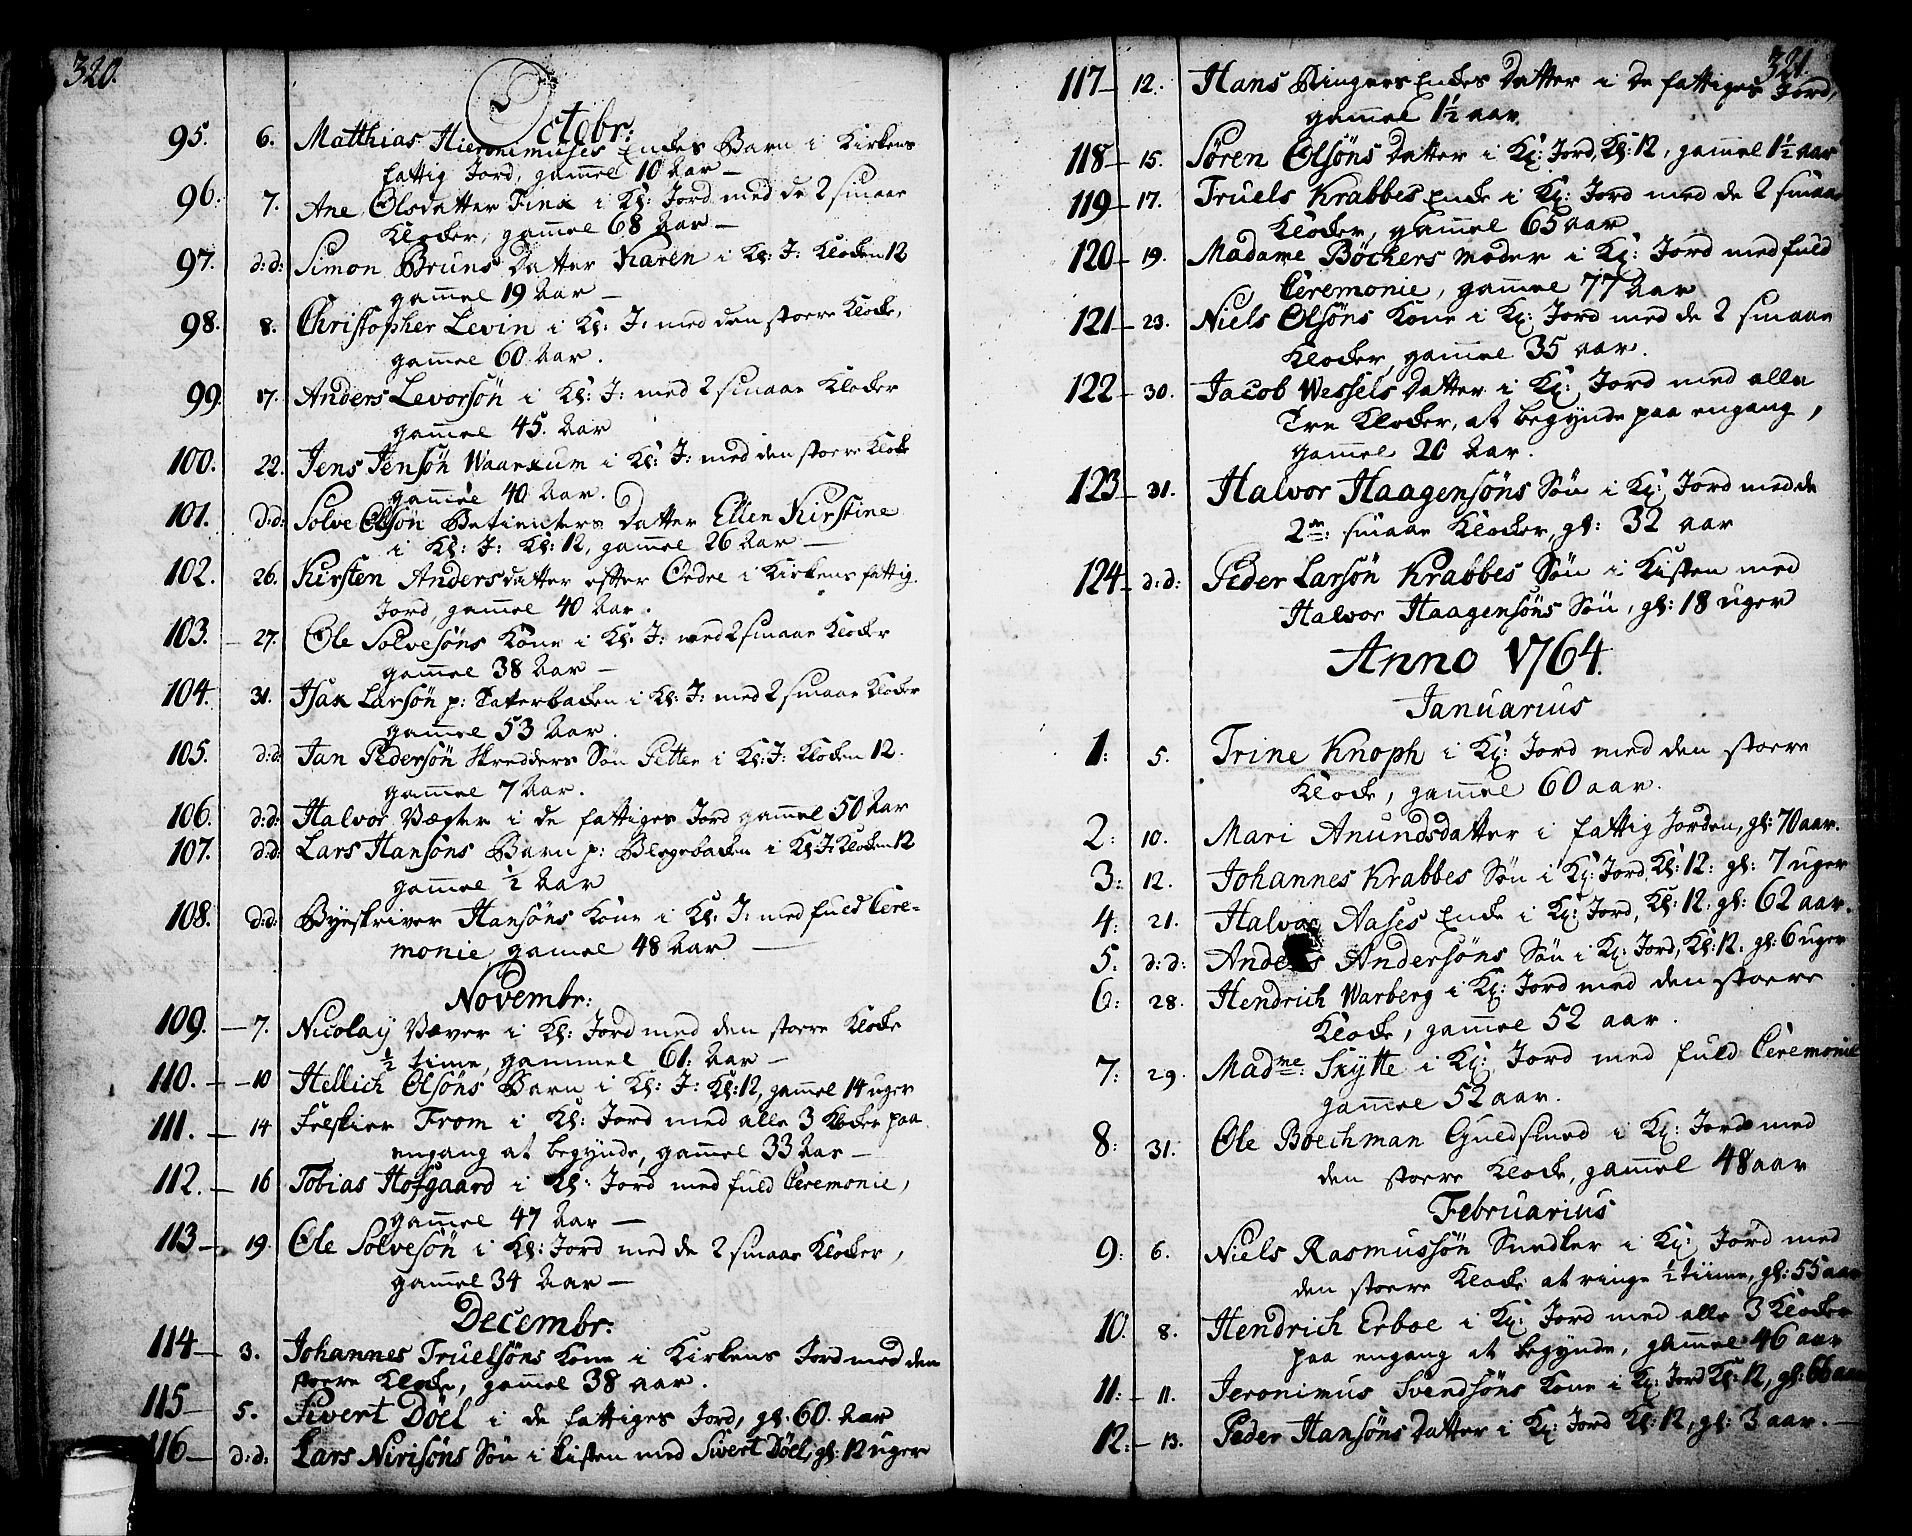 320.
Octobr:
95. 6. Matthias Hieronimuses Enkes Barn i Kirkens
fattig Jord, gammel 10 Aar —
96. 7. Ane Olsdatter Finx i Kl: Jord med de 2 smaae
Klocker, gammel 68 Aar —
97. d:d: Simon Bruns Datter Karen i Kl: J: Klocken 12
gammel 19 Aar —
98. 8. Christopher Levin i Kl: J: med den stoere Klocke,
gammel 60 Aar.
99. 17. Anders Levorsön i Kl: J: med 2 smaae Klocker
gammel 45. Aar
100. 22. Jens Jensön Waarxum i Kl: J: med den stoere Klocke
gammel 40 Aar.
101. d:d: Solve Olsön Betienters Datter Ellen Kirstine
i Kl: J: Kl: 12, gammel 26 Aar —
102. 26. Kirsten Andersdatter efter Ordre i Kirkens fattig
Jord, gammel 40 Aar.
103. — 27. Ole Solvesöns Kone i Kl: J: med 2 smaae Klocker
gammel 38 Aar —
104. 31. Isax Larsön p: Tatterbacken i Kl: J: med 2 smaae Klocker
gammel 53 Aar.
105. d:d: Jan Pedersön Skredders Sön Petter i Kl: J: Klocken 12.
gammel 7 Aar.
106. d:d: Halvor Vægter i de fattiges Jord gammel 50 Aar
107. d:d: Lars Hansöns Barn p: Blegebacken i Kl: J: Klocken 12
gammel ½ Aar
108. d:d: Byeskriver Hansöns Kone i Kl: J: med fuld Cere-
monie gamel 48 Aar —
Novembr:
109. — 7. Nicolaij Væver i Kl: Jord med den stoere Klocke
½ time, gammel 61: Aar —
110. — 10 Hellich Olsöns Barn i Kl: J: Kl: 12, gammel 14 uger
111. — 14 From i Kl: Jord med alle 3 Klocker paa
engang at begynde, gammel 33 Aar —
112. — 16 Tobias Hofgaard i Kl: Jord med fuld Ceremonie,
gammel 47 Aar —
113 — 19. Ole Solvesön i Kl: Jord med de 2 smaae Klocker,
gammel 34 Aar —
Decembr:
114 — 3. Johannes Truelsöns Kone i Kirkens Jord med den
stoere Klocke, gammel 38 aar.
115 — 5. Sivert Döel i de fattiges Jord, gl: 60. Aar
116 — d:d: Lars Nirisöns Sön i kisten med Sivert Döel, gl: 12 uger
321.
117 — 12. Hans Ringers Enkes Datter i De fattiges Jord,
gammel 1½ aar
118 — 15. Sören Olsöns Datter i Kl: Jord, Kl: 12, gammel 1½ aar
119 — 17. Truels Krabbes Enke i Kl: Jord med de 2 smaae
Klocker, gammel 65 aar
120 — 19. Madame Böckers Moder i Kl: Jord med fuld
Ceremonie, gammel 77 Aar
121 — 23. Niels Olsöns Kone i Kl: Jord med de 2 smaae
Klocker, gammel 35 aar.
122 — 30. Jacob Wessels Datter i Kl: Jord med alle
Tre Klocker, at begynde paa engang,
gammel 20 Aar.
123 — 31. Halvor Haagensöns Sön i Kl: Jord med de
2de: smaae Klocker, gl: 32 aar
124 — d:d: Peder Larsön Krabbes Sön i Kisten med
Halvor Haagensöns Sön, gl: 18 uger
Anno 1764.
Januarius
1: 5. Trine Knoph i Kl: Jord med den stoere
Klocke, gammel 60 aar.
2: 10. Mari Anundsdatter i fattig Jorden, gl: 70 aar.
3: 12. Johannes Krabbes Sön i Kl: Jord, Kl: 12: gl: 7 uger
4: 21. Halvor Aases Enke i Kl: Jord, Kl: 12: gl: 62 aar.
5. d:d: Anders Andersöns Sön i Kl: Jord, Kl: 12. gl: 6 uger
6: 28. Hendrich Warberg i Kl: Jord med den stoere
Klocke, gammel 52 aar.
7: 29. Madme: Skytte i Kl: Jord med fuld Ceremonie
gammel 52 aar.
8: 31. Ole Boechman Guldsmed i Kl: Jord med
den stoere Klocke, gammel 48 aar
Februarius
9: 6. Niels Rasmussön Snedker i Kl: Jord med
den stoere Klocke at ringe ½ tiime, gl: 55 aar
10. 8. Hendrich Erboe i Kl: Jord med alle 3 Klocker
paa engang at begynde, gammel 46 aar
11: — 11. Jeronimus Svendsöns Kone i Kl: Jord Kl: 12, gl: 66 aar
12: — 13. Peder Hansöns Datter i Kl: Jord Kl: 12, gl: 3 aar. —